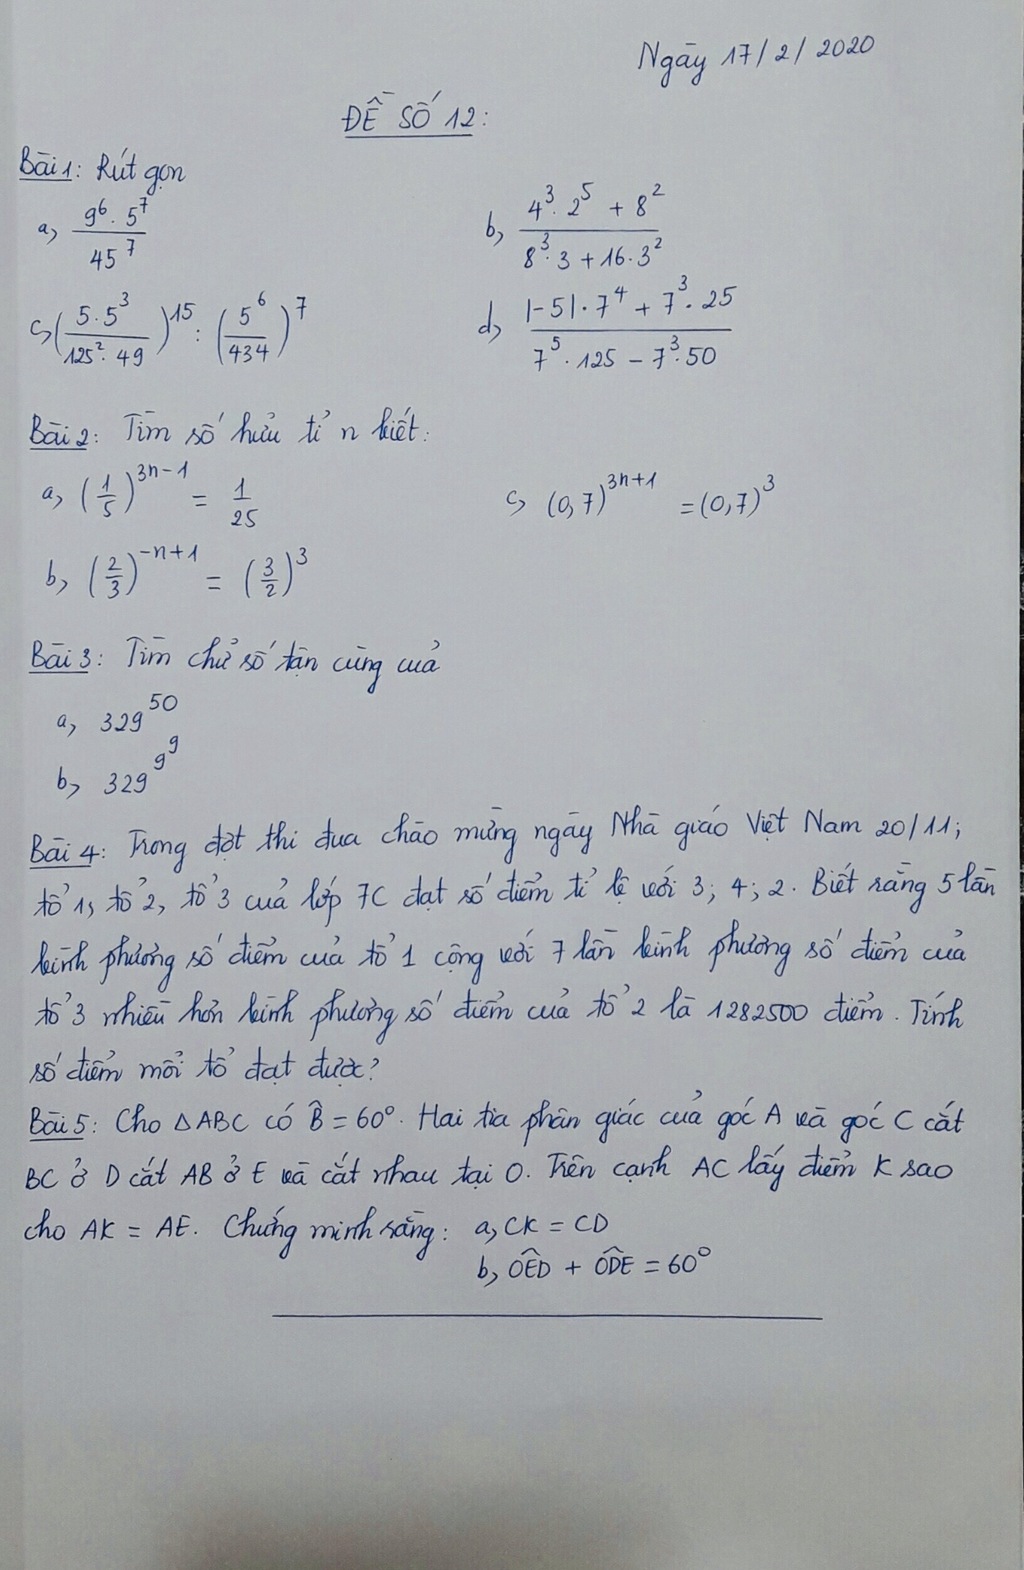 Ngày 17/2/2020
ĐỀ SỐ 12:
Bài 1: Rút gọn
a, 9^6 . 5^7 / 45^7
b, (4^3 . 2^5 + 8^2) / (8^3 . 3 + 16 . 3^2)
c, (5 . 5^3 / 125^2 . 49)^15 : (5^6 / 434)^7
d, (|-5| . 7^4 + 7^3 . 25) / (7^5 . 125 - 7^3 . 50)
Bài 2: Tìm số hữu tỉ n biết:
a, (1/5)^(3n-1) = 1/25
c, (0,7)^(3n+1) = (0,7)^3
b, (2/3)^(-n+1) = (3/2)^3
Bài 3: Tìm chữ số tận cùng của
a, 329^50
b, 329^9^9
Bài 4: Trong đợt thi đua chào mừng ngày Nhà giáo Việt Nam 20/11;
tổ 1, tổ 2, tổ 3 của lớp 7C đạt số điểm tỉ lệ với 3; 4; 2. Biết rằng 5 lần
bình phương số điểm của tổ 1 cộng với 7 lần bình phương số điểm của
tổ 3 nhiều hơn bình phương số điểm của tổ 2 là 1282500 điểm. Tính
số điểm mỗi tổ đạt được?
Bài 5: Cho △ABC có B̂ = 60°. Hai tia phân giác của góc A và góc C cắt
BC ở D cắt AB ở E và cắt nhau tại O. Trên cạnh AC lấy điểm K sao
cho AK = AE. Chứng minh rằng: a, CK = CD
b, OÊD + OD̂E = 60°